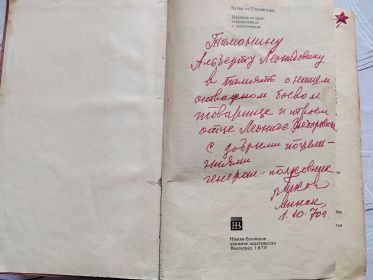 Битва за Сталинград
Издание второе,
исправленное
и дополненное
Тимонину
Альберту Леонидовичу
в память о нашем
отважном боевом
товарище и твоем
отце Леониде Федоровиче
с добрыми пожела-
ниями
генерал-полковник
Минск
1.10.70г.
Нижне-Волжское
книжное издательство
Волгоград 1970